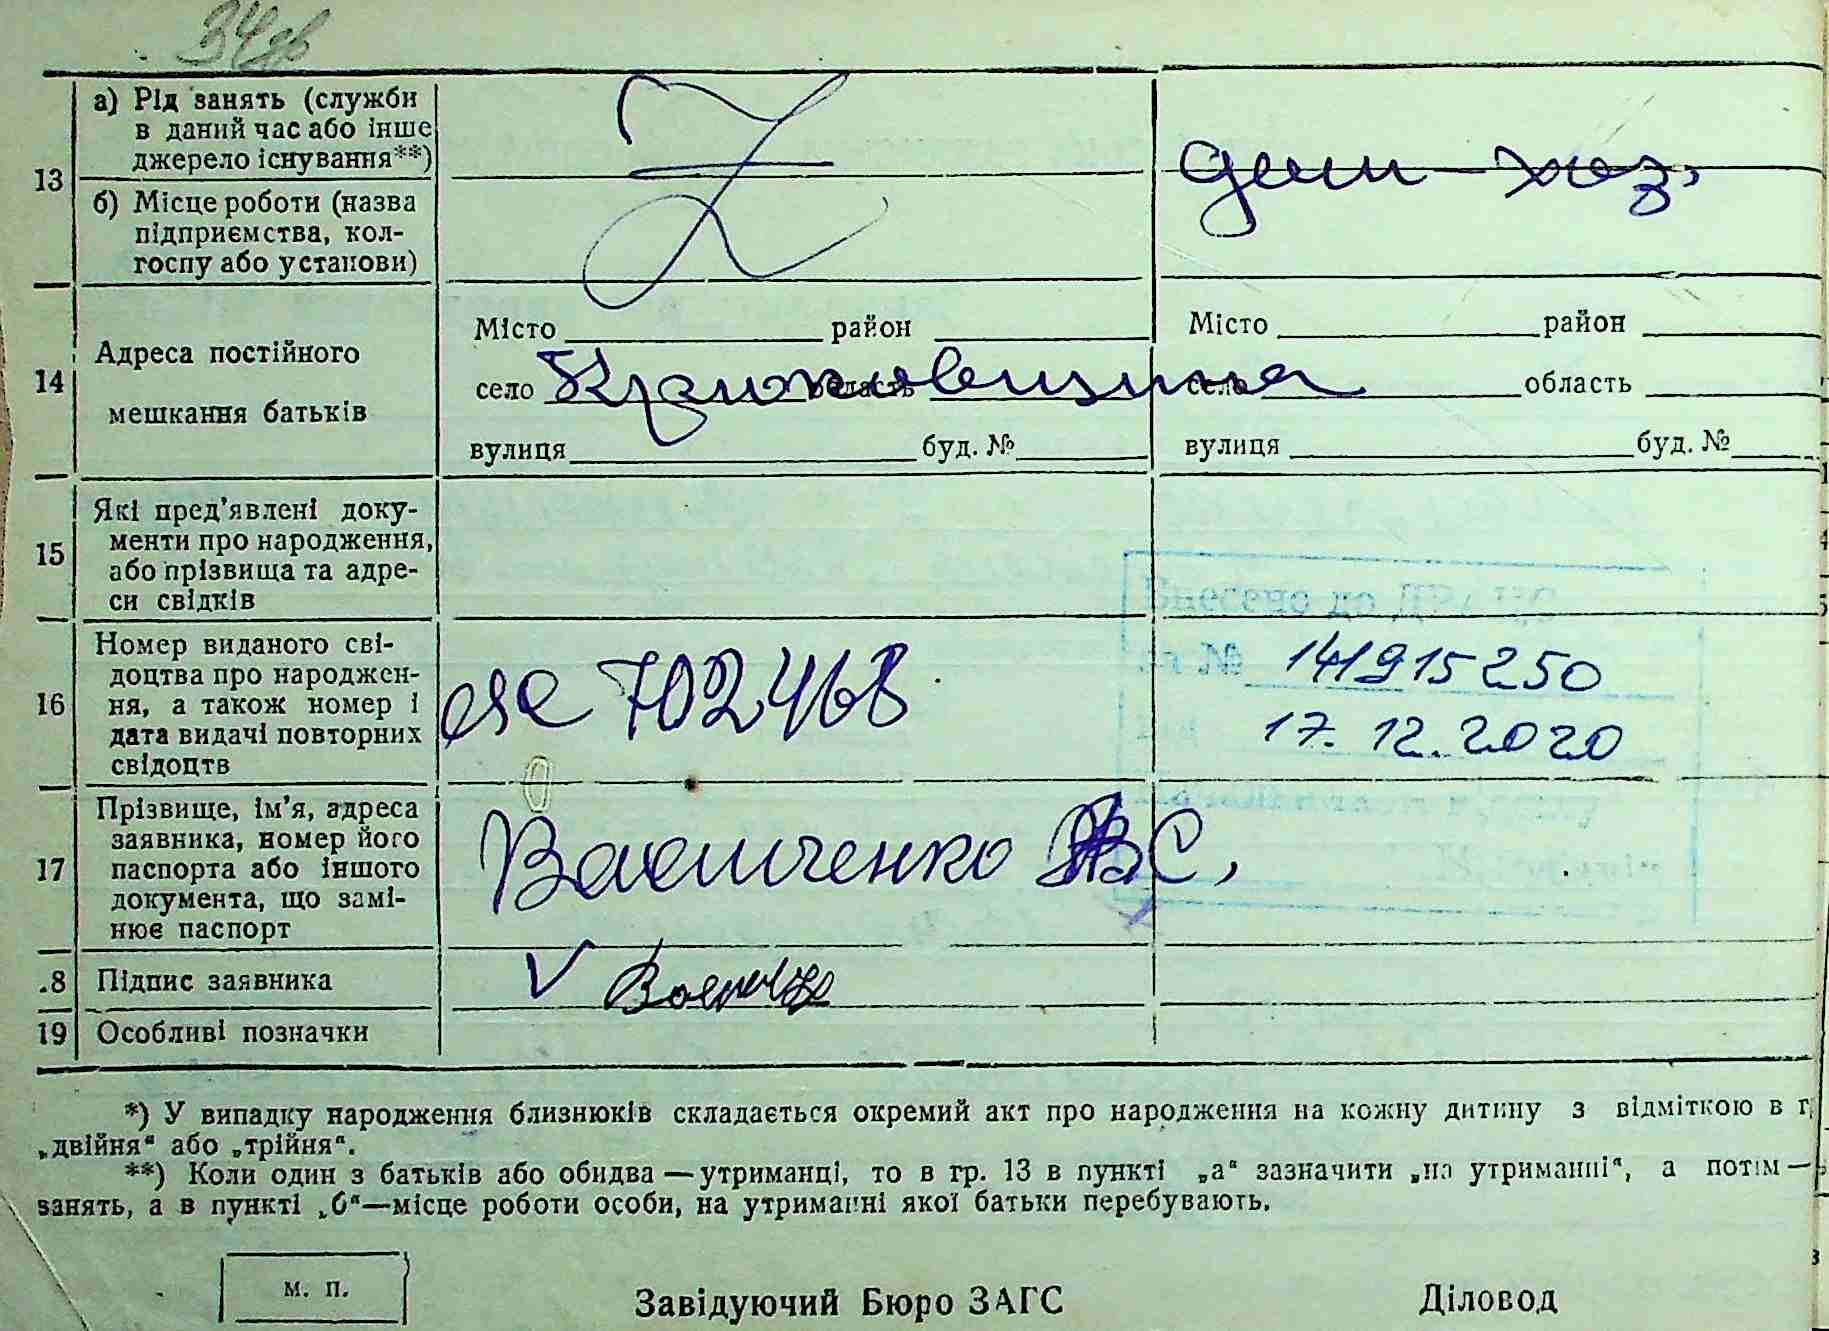 34
13
а) Рід занять (служби
в даний час або інше
джерело існування**)
дом-хоз,
б) Місце роботи (назва
підприємства, кол-
госпу або установи)
14
Адреса постійного
мешкання батьків
Місто район
село область
вулиця буд. №
Місто район
село область
вулиця буд. №
15
Які пред'явлені доку-
менти про народження,
або прізвища та адре-
си свідків
Внесено до ДРАЦС
16
Номер виданого сві-
доцтва про народжен-
ня, а також номер і
дата видачі повторних
свідоцтв
702468
№ 141915250
17.12.2020
17
Прізвище, ім'я, адреса
заявника, номер його
паспорта або іншого
документа, що замі-
нює паспорт
В С,
.8
Підпис заявника
V
19
Особливі позначки
*) У випадку народження близнюків складається окремий акт про народження на кожну дитину з відміткою в г
„двійня“ або „трійня“.
**) Коли один з батьків або обидва — утриманці, то в гр. 13 в пункті „а“ зазначити „на утриманні“, а потім —
занять, а в пункті „б“—місце роботи особи, на утриманні якої батьки перебувають.
м. п.
Завідуючий Бюро ЗАГС
Діловод